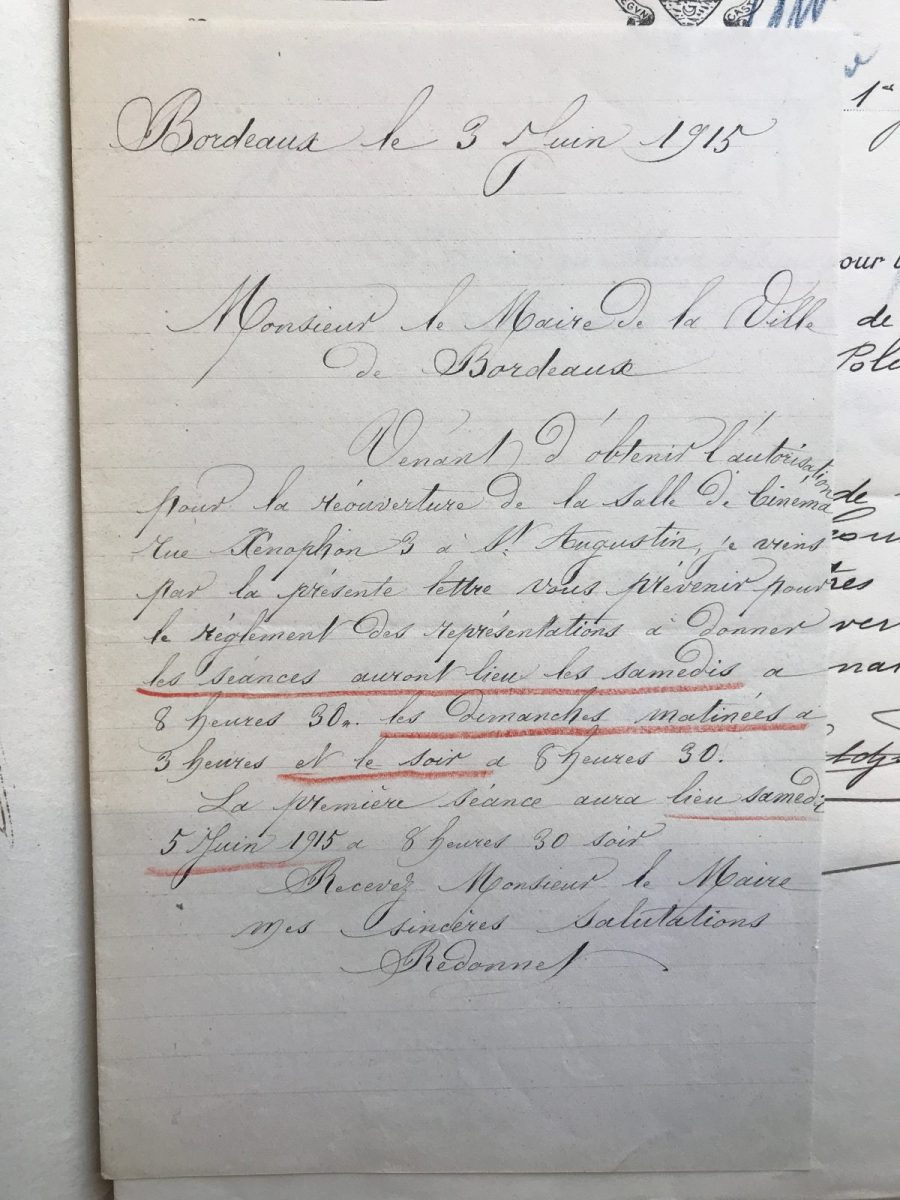 Bordeaux le 3 Juin 1915
Monsieur le Maire de la Ville
de Bordeaux
Vénant d'obtenir l'autorisation
pour la réouverture de la salle de Cinéma
rue Xenophon 3 à St Augustin, je viens
par la présente lettre vous prévenir pour
le réglement des représentations à donner
les séances auront lieu les samedis a
8 heures 30. les dimanches matinées à
3 heures et le soir a 8 heures 30.
La première séance aura lieu samedi
5 Juin 1915 a 8 heures 30 soir
Recevez Monsieur le Maire
mes sincères salutations
Rédonnet
1er
our
de
de
res
ver